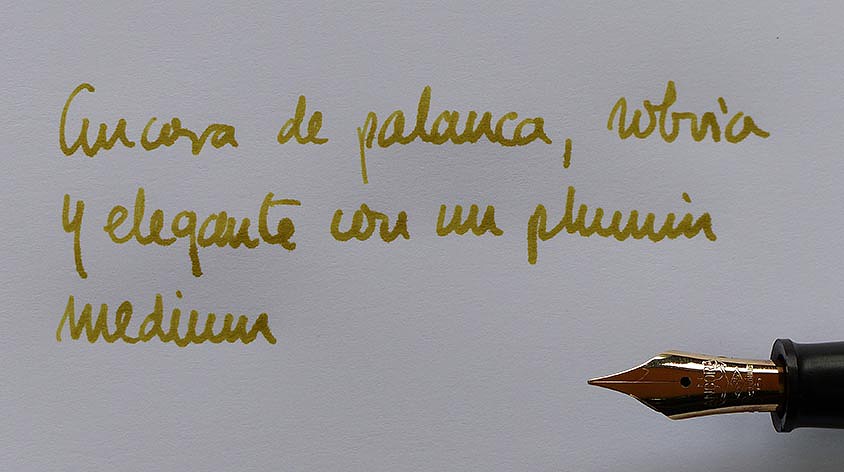 Ancora de palanca, sobria
y elegante con un plumin
medium
ANCORA